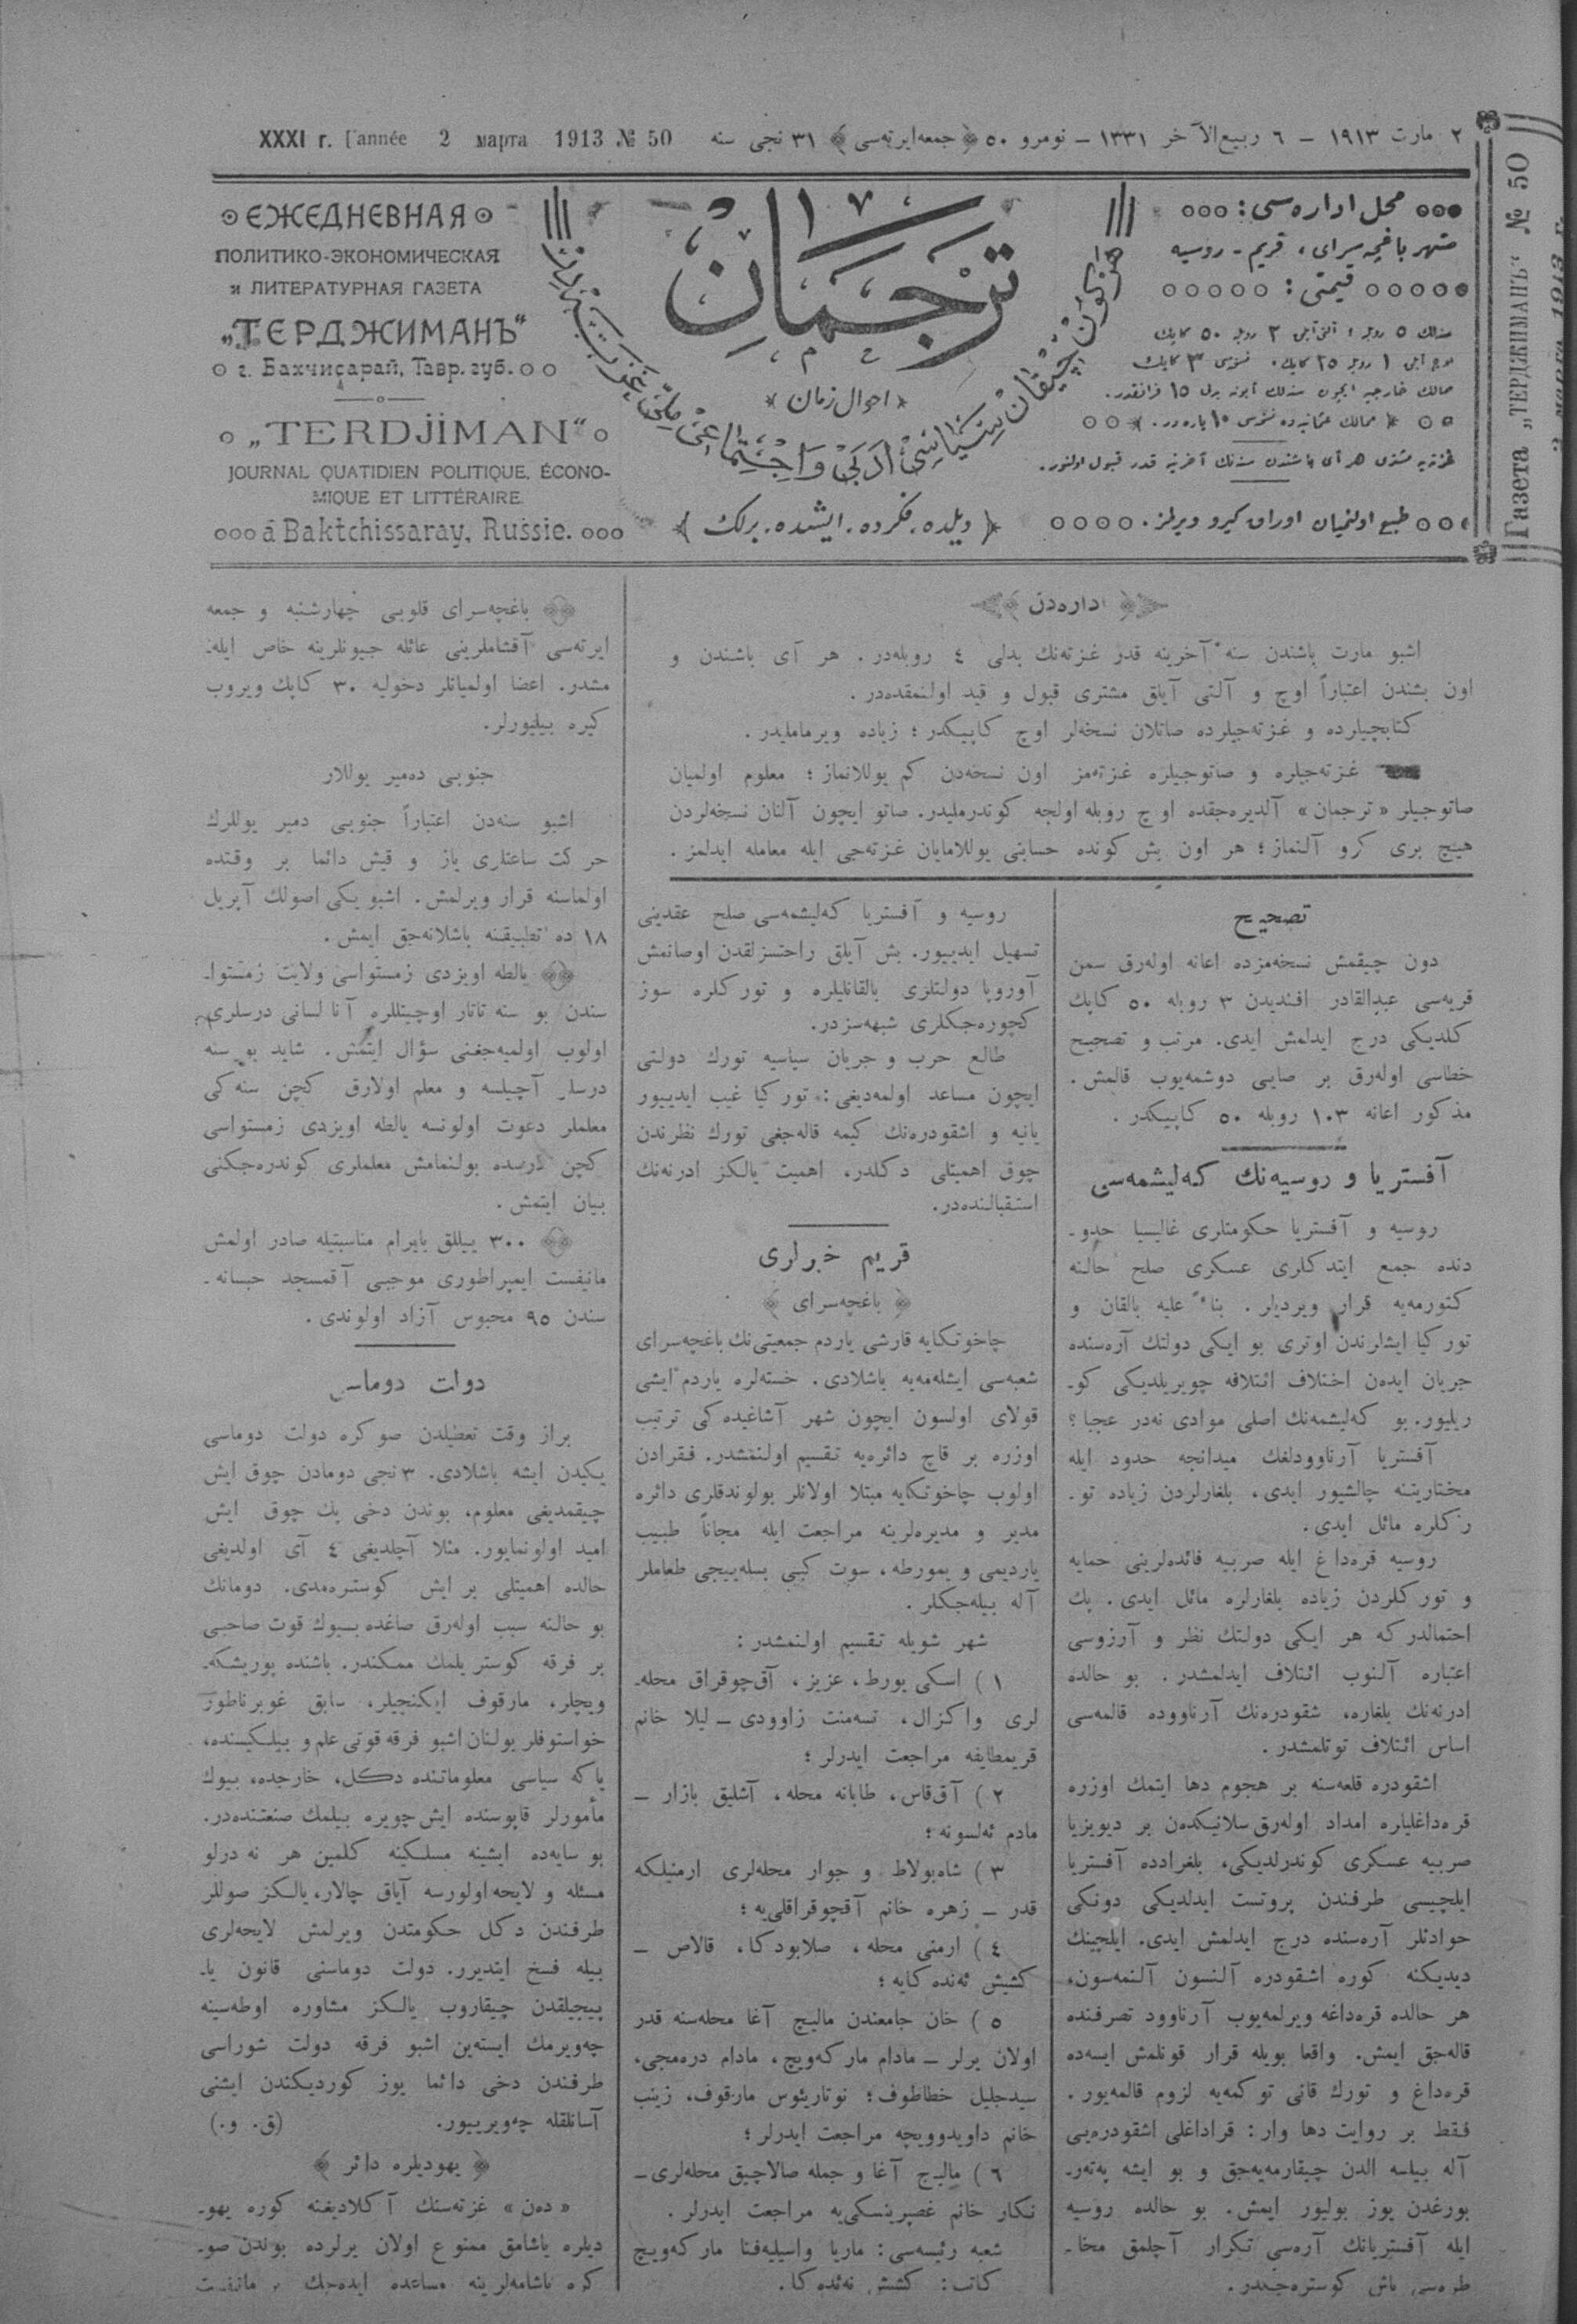 XXXI г. l'année 2 марта 1913 № 50
٢ مارت ١٩١٣ – ٦ ربيع‌الآخر ١٣٣١ – نومرو ٥٠ ﴿جمعه‌ايرته‌سى﴾ ٣١ نجى سنه
Газета „ТЕРДЖИМАНЪ“ № 50
ЕЖЕДНЕВНАЯ
ПОЛИТИКО-ЭКОНОМИЧЕСКАЯ
и ЛИТЕРАТУРНАЯ ГАЗЕТА
„ТЕРДЖИМАНЪ“
г. Бахчисарай, Тавр. губ.
„TERDJIMAN“
JOURNAL QUATIDIEN POLITIQUE, ÉCONO-
MIQUE ET LITTÉRAIRE.
à Baktchissaray, Russie.
ترجمان
احوال زمان
هر كون چيقان سياسى ادبى و اجتماعى ملى غزته
﴿ ديلده. فكرده. ايشده. برلك ﴾
محل اداره‌سى:
شهر باغچه‌سراى، قريم - روسيه
قيمتى:
سنه‌لك ٥ روبله ؛ آلتى آيلق ٣ روبله ٥٠ كاپك
اوچ آيلق ١ روبله ٢٥ كاپك. نسخه‌سى ٣ كاپك
ممالك خارجيه ايچون سنه‌لك آبونه بدلى ١٥ فرانقدر.
﴿ ممالك عثمانيه‌ده نسخه‌سى ١٠ پاره‌در. ﴾
غزته‌يه مشترى هر آى باشندن سنه‌نك آخرينه قدر قبول اولنور.
طبع اولنميان اوراق كيرو ويرلمز.
اداره‌دن
اشبو مارت باشندن سنهٔ آخرينه قدر غزته‌نك بدلى ٤ روبله‌در. هر آى باشندن و
اون بشندن اعتباراً اوچ و آلتى آيلق مشترى قبول و قيد اولنمقده‌در.
كتابچيلرده و غزته‌جيلرده صاتلان نسخه‌لر اوچ كاپيكدر ؛ زياده ويرمامليدر.
غزته‌جيلره و صاتوجيلره غزته‌مز اون نسخه‌دن كم يوللانماز ؛ معلوم اولميان
صاتوجيلر «ترجمان» آلديره‌جقده اوچ روبله اولجه كوندرمليدر. صاتو ايچون آلنان نسخه‌لردن
هيچ برى كرو آلنماز؛ هر اون بش كونده حسابنى يوللامايان غزته‌جى ايله معامله ايدلمز.
تصحيح
دون چيقمش نسخه‌مزده اعانه اوله‌رق سمن
قريه‌سى عبدالقادر افنديدن ٣ روبله ٥٠ كاپك
كلديكى درج ايدلمش ايدى. مرتب و تصحيح
خطاسى اوله‌رق بر صايى دوشمه‌يوب قالمش.
مذكور اعانه ١٠٣ روبله ٥٠ كاپيكدر.
آفستريا و روسيه‌نك كه‌ليشمه‌سى
روسيه و آفستريا حكومتلرى غاليسيا حدو-
دنده جمع ايتدكلرى عسكرى صلح حالنه
كتورمه‌يه قرار ويرديلر. بناءً عليه بالقان و
توركيا ايشلرندن اوترى بو ايكى دولتك آره‌سنده
جريان ايده‌ن اختلاف ائتلافه چويريلديكى كو-
ريليور. بو كه‌ليشمه‌نك اصلى موادى نه‌در عجبا؟
آفستريا آرناوودلغك ميدانجه حدود ايله
مختاريتنه چاليشيور ايدى، بلغارلردن زياده تو-
ركلره مائل ايدى.
روسيه قره‌داغ ايله صربيه فائده‌لرينى حمايه
و توركلردن زياده بلغارلره مائل ايدى. پك
احتمالدركه هر ايكى دولتك نظر و آرزوسى
اعتباره آلنوب ائتلاف ايدلمشدر. بو حالده
ادرنه‌نك بلغاره، شقودره‌نك آرناووده قالمه‌سى
اساس ائتلاف توتلمشدر.
اشقودره قلعه‌سنه بر هجوم دها ايتمك اوزره
قره‌داغليلره امداد اوله‌رق سلانيكده‌ن بر ديويزيا
صربيه عسكرى كوندرلديكى، بلغرادده آفستريا
ايلچيسى طرفندن پروتست ايدلديكى دونكى
حوادثلر آره‌سنده درج ايدلمش ايدى. ايلچينك
ديديكنه كوره اشقودره آلنسون آلنمه‌سون،
هر حالده قره‌داغه ويرلمه‌يوب آرناوود تصرفنده
قاله‌جق ايمش. واقعا بويله قرار قونلمش ايسه‌ده
قره‌داغ و تورك قانى توكمه‌يه لزوم قالمه‌يور.
فقط بر روايت دها وار: قراداغلى اشقودره‌يى
آله بيلسه الدن چيقارمه‌يه‌جق و بو ايشه په‌ته‌ر-
بورغدن يوز بوليور ايمش. بو حالده روسيه
ايله آفستريانك آره‌سى تكرار آچلمق مخا-
طره‌سى باش كوستره‌جكدر.
روسيه و آفستريا كه‌ليشمه‌سى صلح عقدينى
تسهيل ايدييور. بش آيلق راحتسزلقدن اوصانمش
آوروپا دولتلرى بالقانليلره و توركلره سوز
كچوره‌جكلرى شبهه‌سزدر.
طالع حرب و جريان سياسيه تورك دولتى
ايچون مساعد اولمه‌ديغى: توركيا غيب ايدييور
يانيه و اشقودره‌نك كيمه قاله‌جغى تورك نظرندن
چوق اهميتلى دكلدر، اهميت يالكز ادرنه‌نك
استقبالنده‌در.
قريم خبرلرى
﴿ باغچه‌سراى ﴾
چاخوتكايه قارشى ياردم جمعيتى‌نك باغچه‌سراى
شعبه‌سى ايشله‌مه‌يه باشلادى. خسته‌لره ياردم ايشى
قولاى اولسون ايچون شهر آشاغيده‌كى ترتيب
اوزره بر قاچ دائره‌يه تقسيم اولنمشدر. فقرادن
اولوب چاخوتكايه مبتلا اولانلر بولوندقلرى دائره
مدير و مديره‌لرينه مراجعت ايله مجاناً طبيب
يارديمى و يمورطه، سوت كبى بسله‌ييجى طعاملر
آله بيله‌جكلر.
شهر شويله تقسيم اولنمشدر:
١) اسكى يورط، عزيز، آق‌چوقراق محله-
لرى واكزال، تسه‌منت زاوودى – ليلا خانم
قريمطايفه مراجعت ايدرلر؛
٢) آق‌قاس، طابانه محله، آشليق بازار –
مادم ئه‌لسونه؛
٣) شاه‌بولاط و جوار محله‌لرى ارمنيلكه
قدر – زهره خانم آقچوقراقلى‌يه؛
٤) ارمنى محله، صلابودكا، قالاص –
كشيش ئه‌نده‌كايه؛
٥) خان جامعندن ماليچ آغا محله‌سنه قدر
اولان يرلر – مادام ماركه‌ويچ، مادام دره‌مجى،
سيدجليل خطاطوف؛ نوتاريئوس مارقوف، زينب
خانم داويدوويچه مراجعت ايدرلر؛
٦) ماليچ آغا و جمله صالاچيق محله‌لرى–
نكار خانم غصپرينسكى‌يه مراجعت ايدرلر.
شعبه رئيسه‌سى: ماريا واسيليه‌فنا ماركه‌ويچ
كاتب: كشيش ئه‌نده‌كا.
باغچه‌سراى قلوبى چهارشنبه و جمعه
ايرته‌سى آقشاملرينى عائله جيونلرينه خاص ايله-
مشدر. اعضا اولميانلر دخوليه ٣٠ كاپك ويروب
كيره بيليورلر.
جنوبى ده‌مير يوللار
اشبو سنه‌دن اعتباراً جنوبى دمير يوللرك
حركت ساعتلرى ياز و قيش دائما بر وقتده
اولماسنه قرار ويرلمش. اشبو يكى اصولك آپريل
١٨ ده تطبيقنه باشلانه‌جق ايمش.
يالطه اويزدى زمستواسى ولايت زمستوا-
سندن بو سنه تاتار اوچيتللره آنا لسانى درسلرى
اولوب اولميه‌جغنى سؤال ايتمش. شايد بو سنه
درسلر آچيلسه و معلم اولارق كچن سنه‌كى
معلملر دعوت اولونسه يالطه اويزدى زمستواسى
كچن درسده بولنمامش معلملرى كوندره‌جكنى
بيان ايتمش.
٣٠٠ ييللق بايرام مناسبتيله صادر اولمش
مانيفست ايمپراطورى موجبى آقمسجد حبسانه-
سندن ٩٥ محبوس آزاد اولوندى.
دولت دوماسى
براز وقت تعطيلدن صوكره دولت دوماسى
يكيدن ايشه باشلادى. ٣نجى دومادن چوق ايش
چيقمديغى معلوم، بوندن دخى پك چوق ايش
اميد اولونمايور. مثلا آچلديغى ٤ آى اولديغى
حالده اهميتلى بر ايش كوستره‌مدى. دومانك
بو حالنه سبب اوله‌رق صاغده بيوك قوت صاحبى
بر فرقه كوستريلمك ممكندر. باشنده پوريشكه-
ويچلر، مارقوف ايكنجيلر، سابق غوبرناطور
خواستوفلر بولنان اشبو فرقه قوتى علم و بيلكيسنده،
ياكه سياسى معلوماتنده دكل، خارجده، بيوك
مأمورلر قاپوسنده ايش چويره بيلمك صنعتنده‌در.
بو سايه‌ده ايشينه مسلكينه كلمين هر نه درلو
مسئله و لايحه اولورسه آياق چالار، يالكز صوللر
طرفندن دكل حكومتدن ويرلمش لايحه‌لرى
بيله فسخ ايتديرر. دولت دوماسنى قانون يا-
پيجيلقدن چيقاروب يالكز مشاوره اوطه‌سينه
چه‌ويرمك ايسته‌ين اشبو فرقه دولت شوراسى
طرفندن دخى دائما يوز كورديكندن ايشنى
آسانلقله چه‌ويرييور. (ق. و.)
﴿ يهوديلره دائر ﴾
«ده‌ن» غزته‌سنك آكلاديغنه كوره يهو-
ديلره ياشامق ممنوع اولان يرلرده بوندن صو-
كره ياشامه‌لرينه مساعده ايده‌جك بر مانيفست